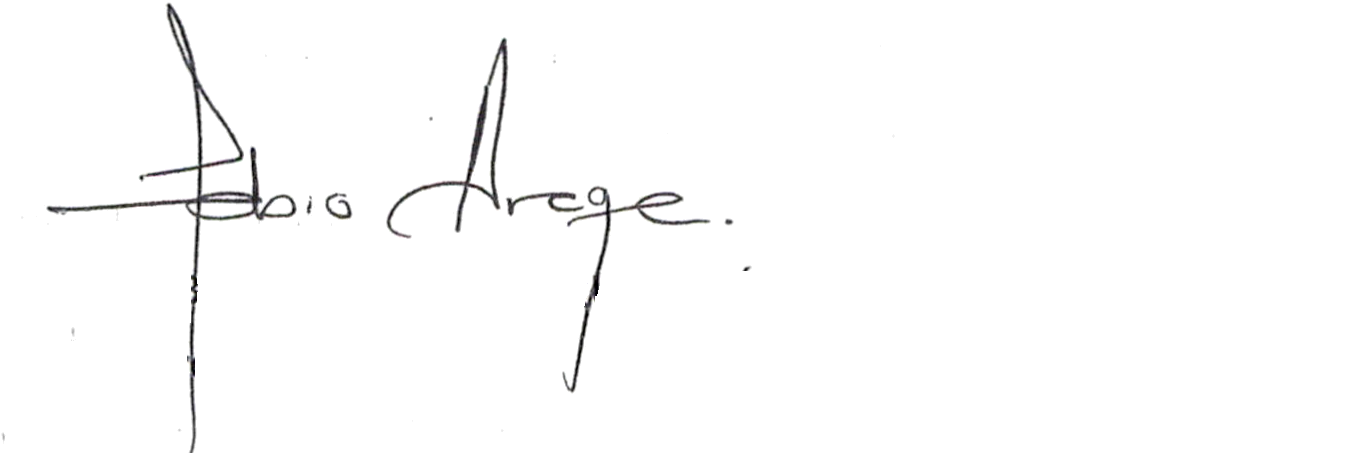 Fabio Arege.